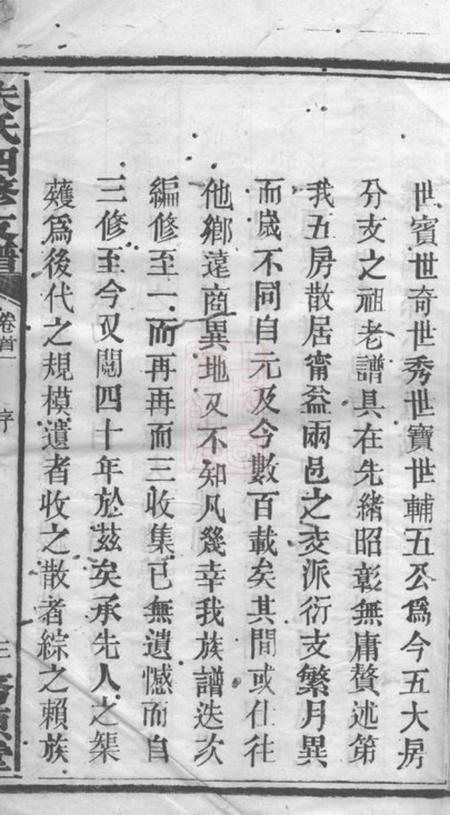 世賓世奇世秀世寶世輔五公爲今五大房
分支之祖老譜具在先緒昭彰無庸贅述第
我五房散居甯益兩邑之交派衍支繁月異
而歲不同自元及今數百載矣其間或仕往
他鄉遠商異地又不知凡幾幸我族譜迭次
編修至一而再再而三收集已無遺憾而自
三修至今又閱四十年於茲矣承先人之榘
矱爲後代之規模遺者收之散者綜之賴族
朱氏四修支譜
卷首
序
三